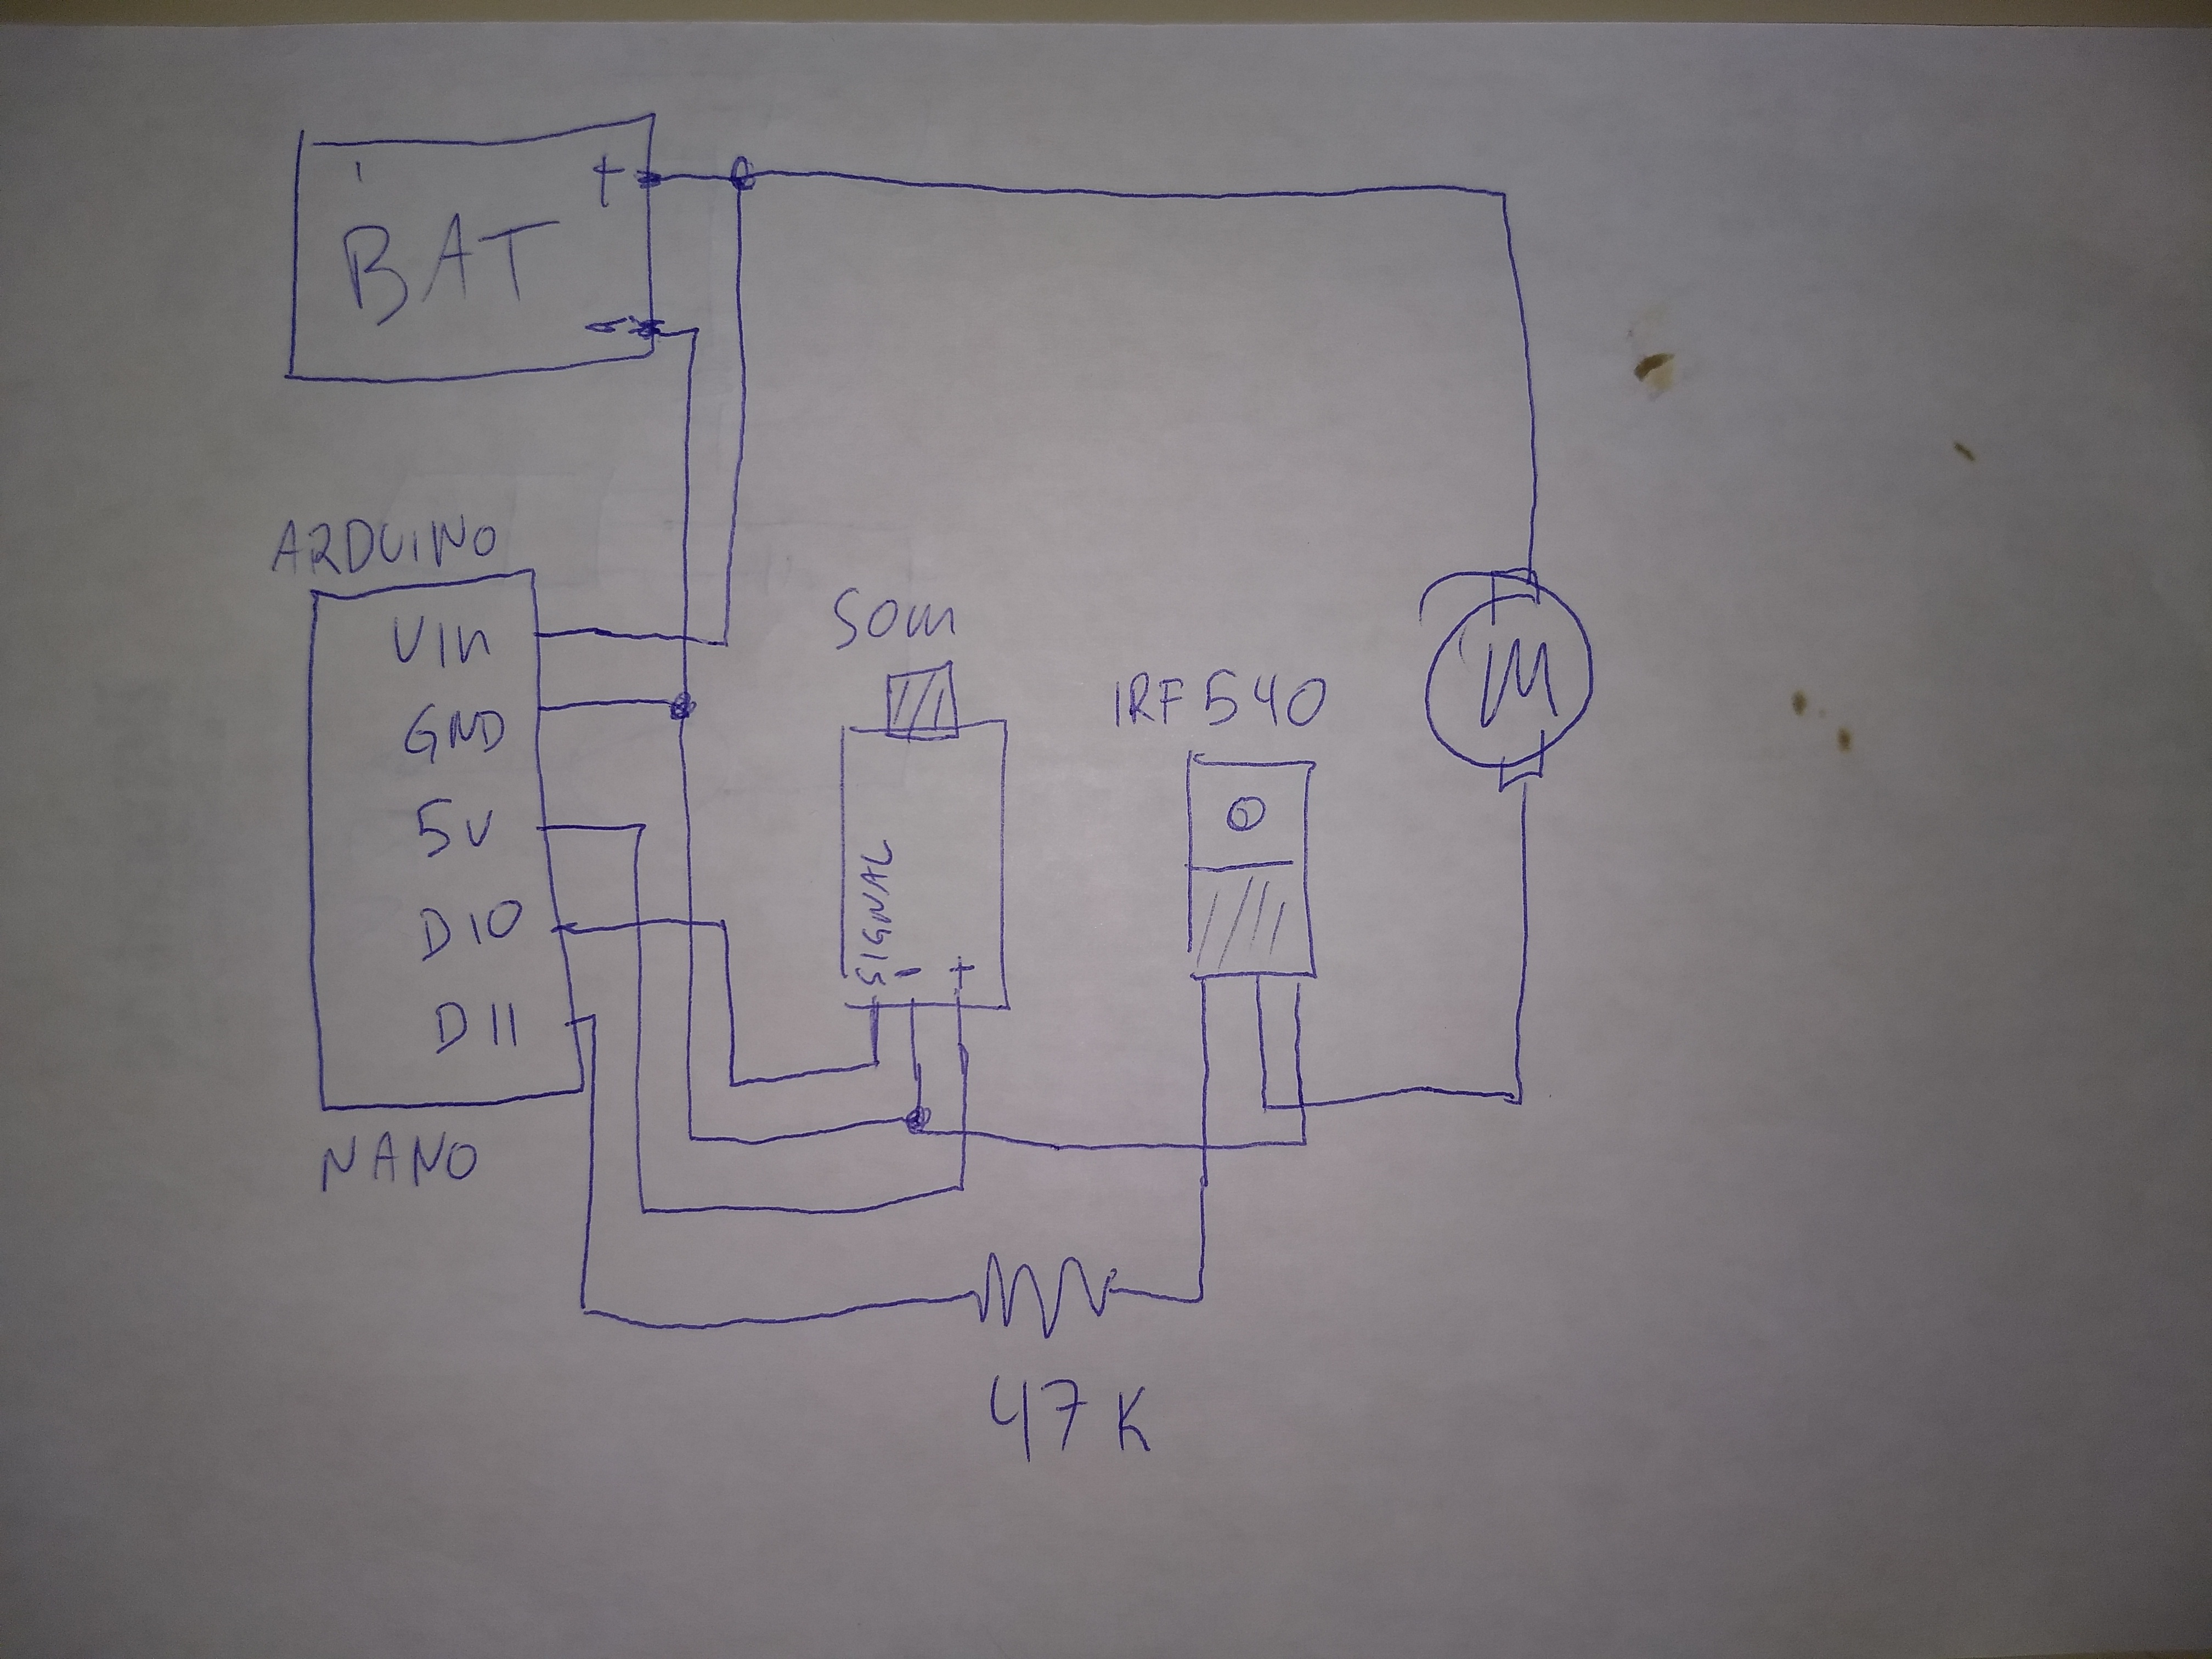 +
BAT
-
ARDUINO
VIN
GND
5V
D10
D11
NANO
SOM
SIGNAL
- +
IRF540
M
47K